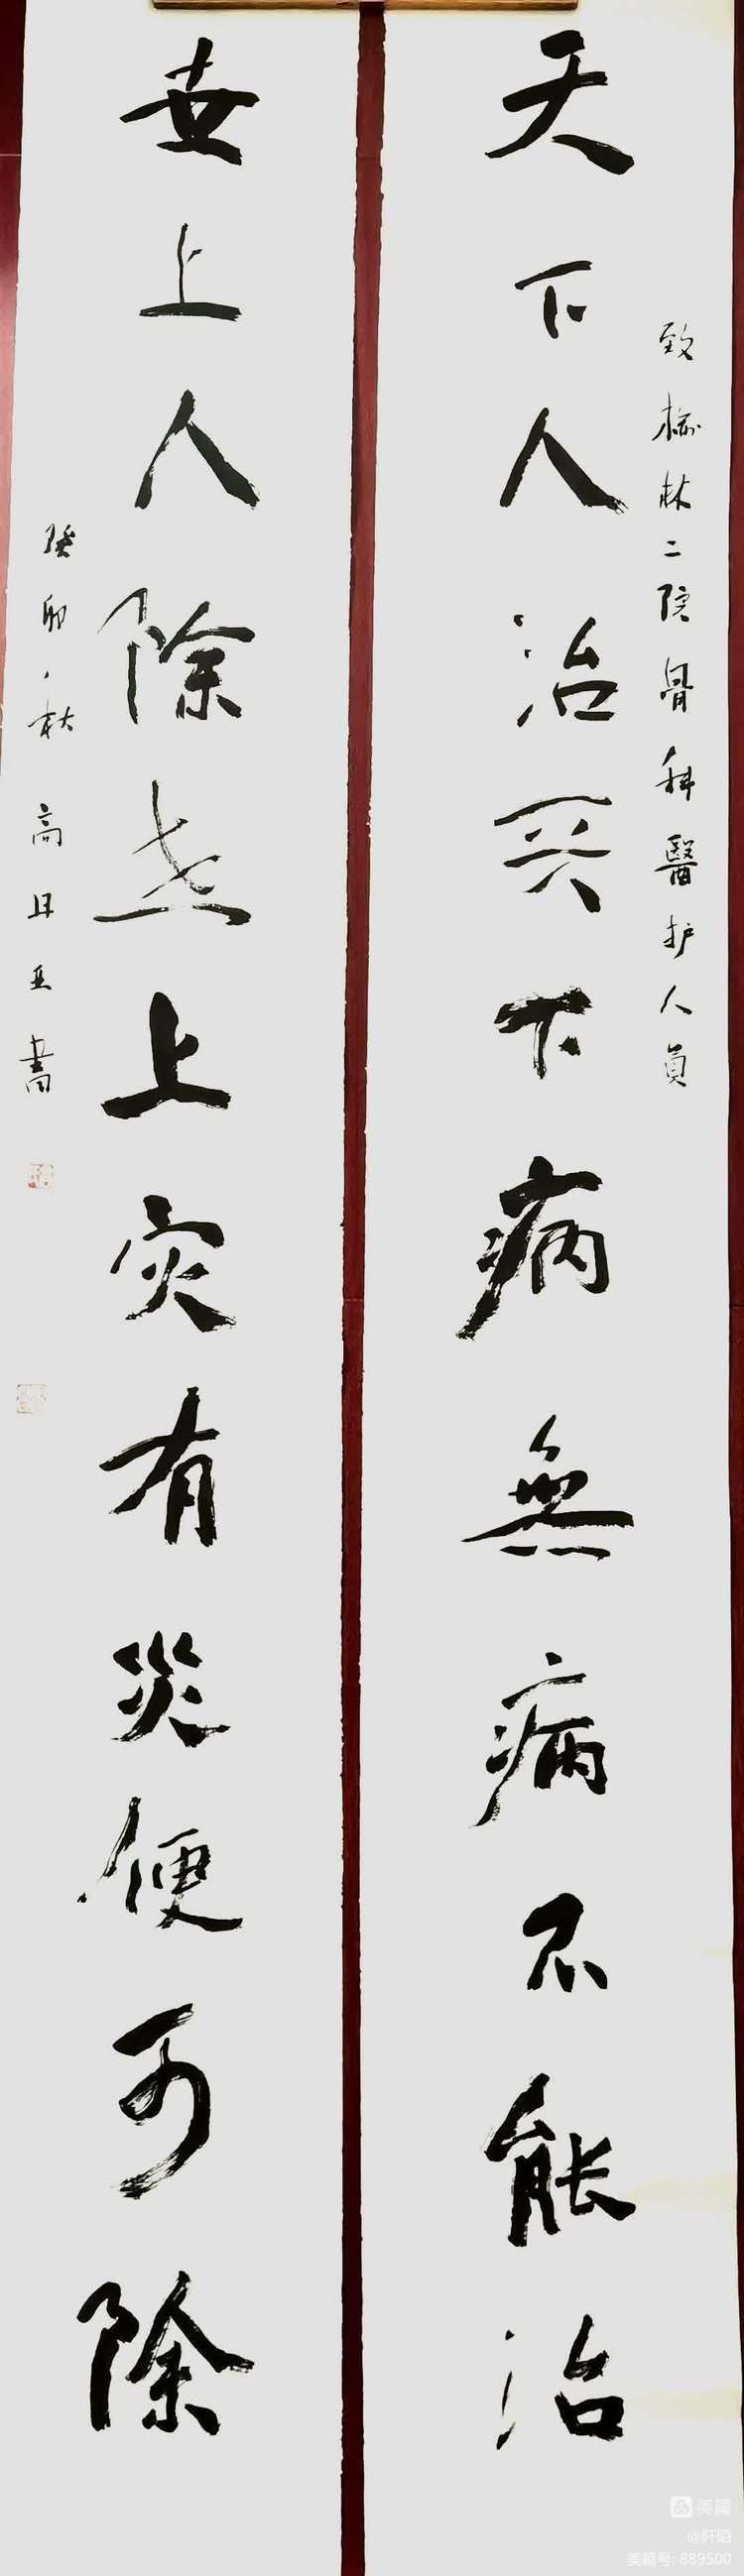 致榆林二院骨科醫护人員
天下人治天下病無病不能治
世上人除世上灾有災便可除
癸卯秋高日亚書
美篇
@阡陌
美篇号: 889500